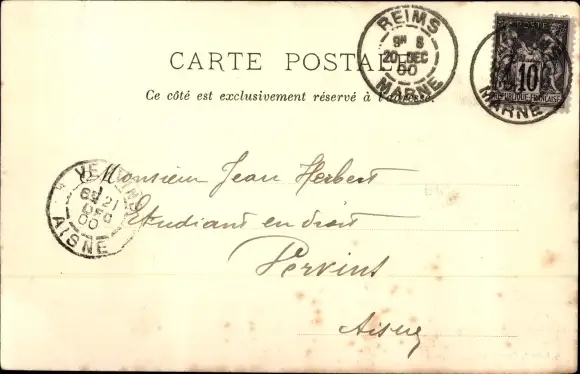 REIMS
9H S
20 DEC
00
MARNE
POSTES
10
REPUBLIQUE FRANÇAISE
MARNE
CARTE POSTALE
Ce côté est exclusivement réservé à l'adresse.
VERVINS
21
DEC
00
AISNE
Monsieur Jean Herbert
Etudiant en droit
Vervins
Aisne